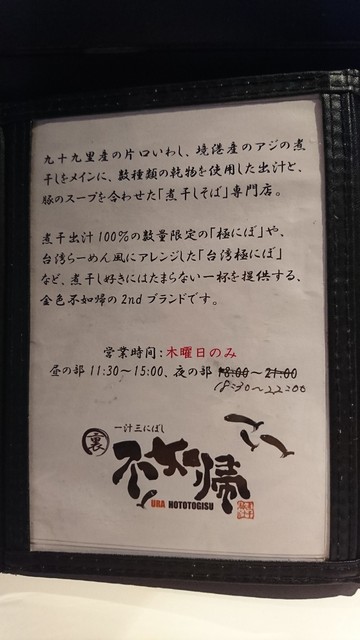 九十九里産の片口いわし、境港産のアジの煮
干しをメインに、数種類の乾物を使用した出汁と、
豚のスープを合わせた「煮干しそば」専門店。
煮干出汁100%の数量限定の「極にぼ」や、
台湾らーめん風にアレンジした「台湾極にぼ」
など、煮干し好きにはたまらない一杯を提供する、
金色不如帰の2ndブランドです。
営業時間：木曜日のみ
昼の部 11:30～15:00、夜の部 18:00～21:00
18:30～22:00
一汁三にぼし
裏 不如帰
URA HOTOTOGISU